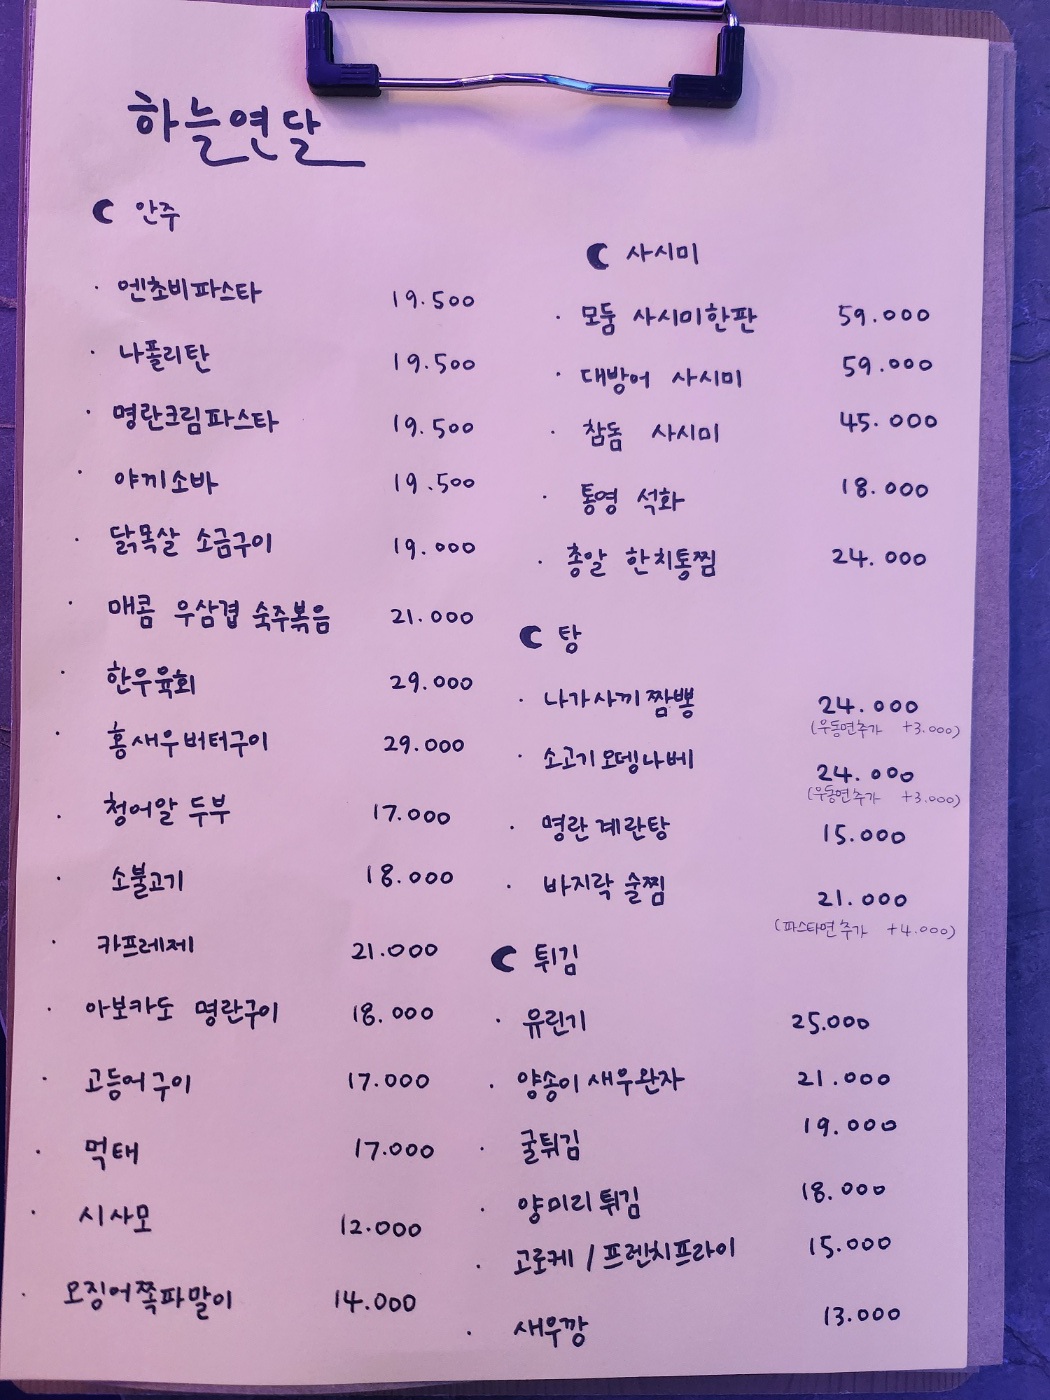 하늘연달
안주
· 엔초비파스타 19.500
· 나폴리탄 19.500
· 명란크림파스타 19.500
· 야끼소바 19.500
· 닭목살 소금구이 19.000
· 매콤 우삼겹 숙주볶음 21.000
· 한우육회 29.000
· 홍새우버터구이 29.000
· 청어알 두부 17.000
· 소불고기 18.000
· 카프레제 21.000
· 아보카도 명란구이 18.000
· 고등어구이 17.000
· 먹태 17.000
· 시사모 12.000
· 오징어쪽파말이 14.000
사시미
· 모둠 사시미한판 59.000
· 대방어 사시미 59.000
· 참돔 사시미 45.000
· 통영 석화 18.000
· 총알 한치통찜 24.000
탕
· 나가사끼짬뽕 24.000
(우동면추가 +3.000)
· 소고기오뎅나베 24.000
(우동면추가 +3.000)
· 명란계란탕 15.000
· 바지락 술찜 21.000
(파스타면추가 +4.000)
튀김
· 유린기 25.000
· 양송이새우완자 21.000
· 굴튀김 19.000
· 양미리튀김 18.000
· 고로케 / 프렌치프라이 15.000
· 새우깡 13.000